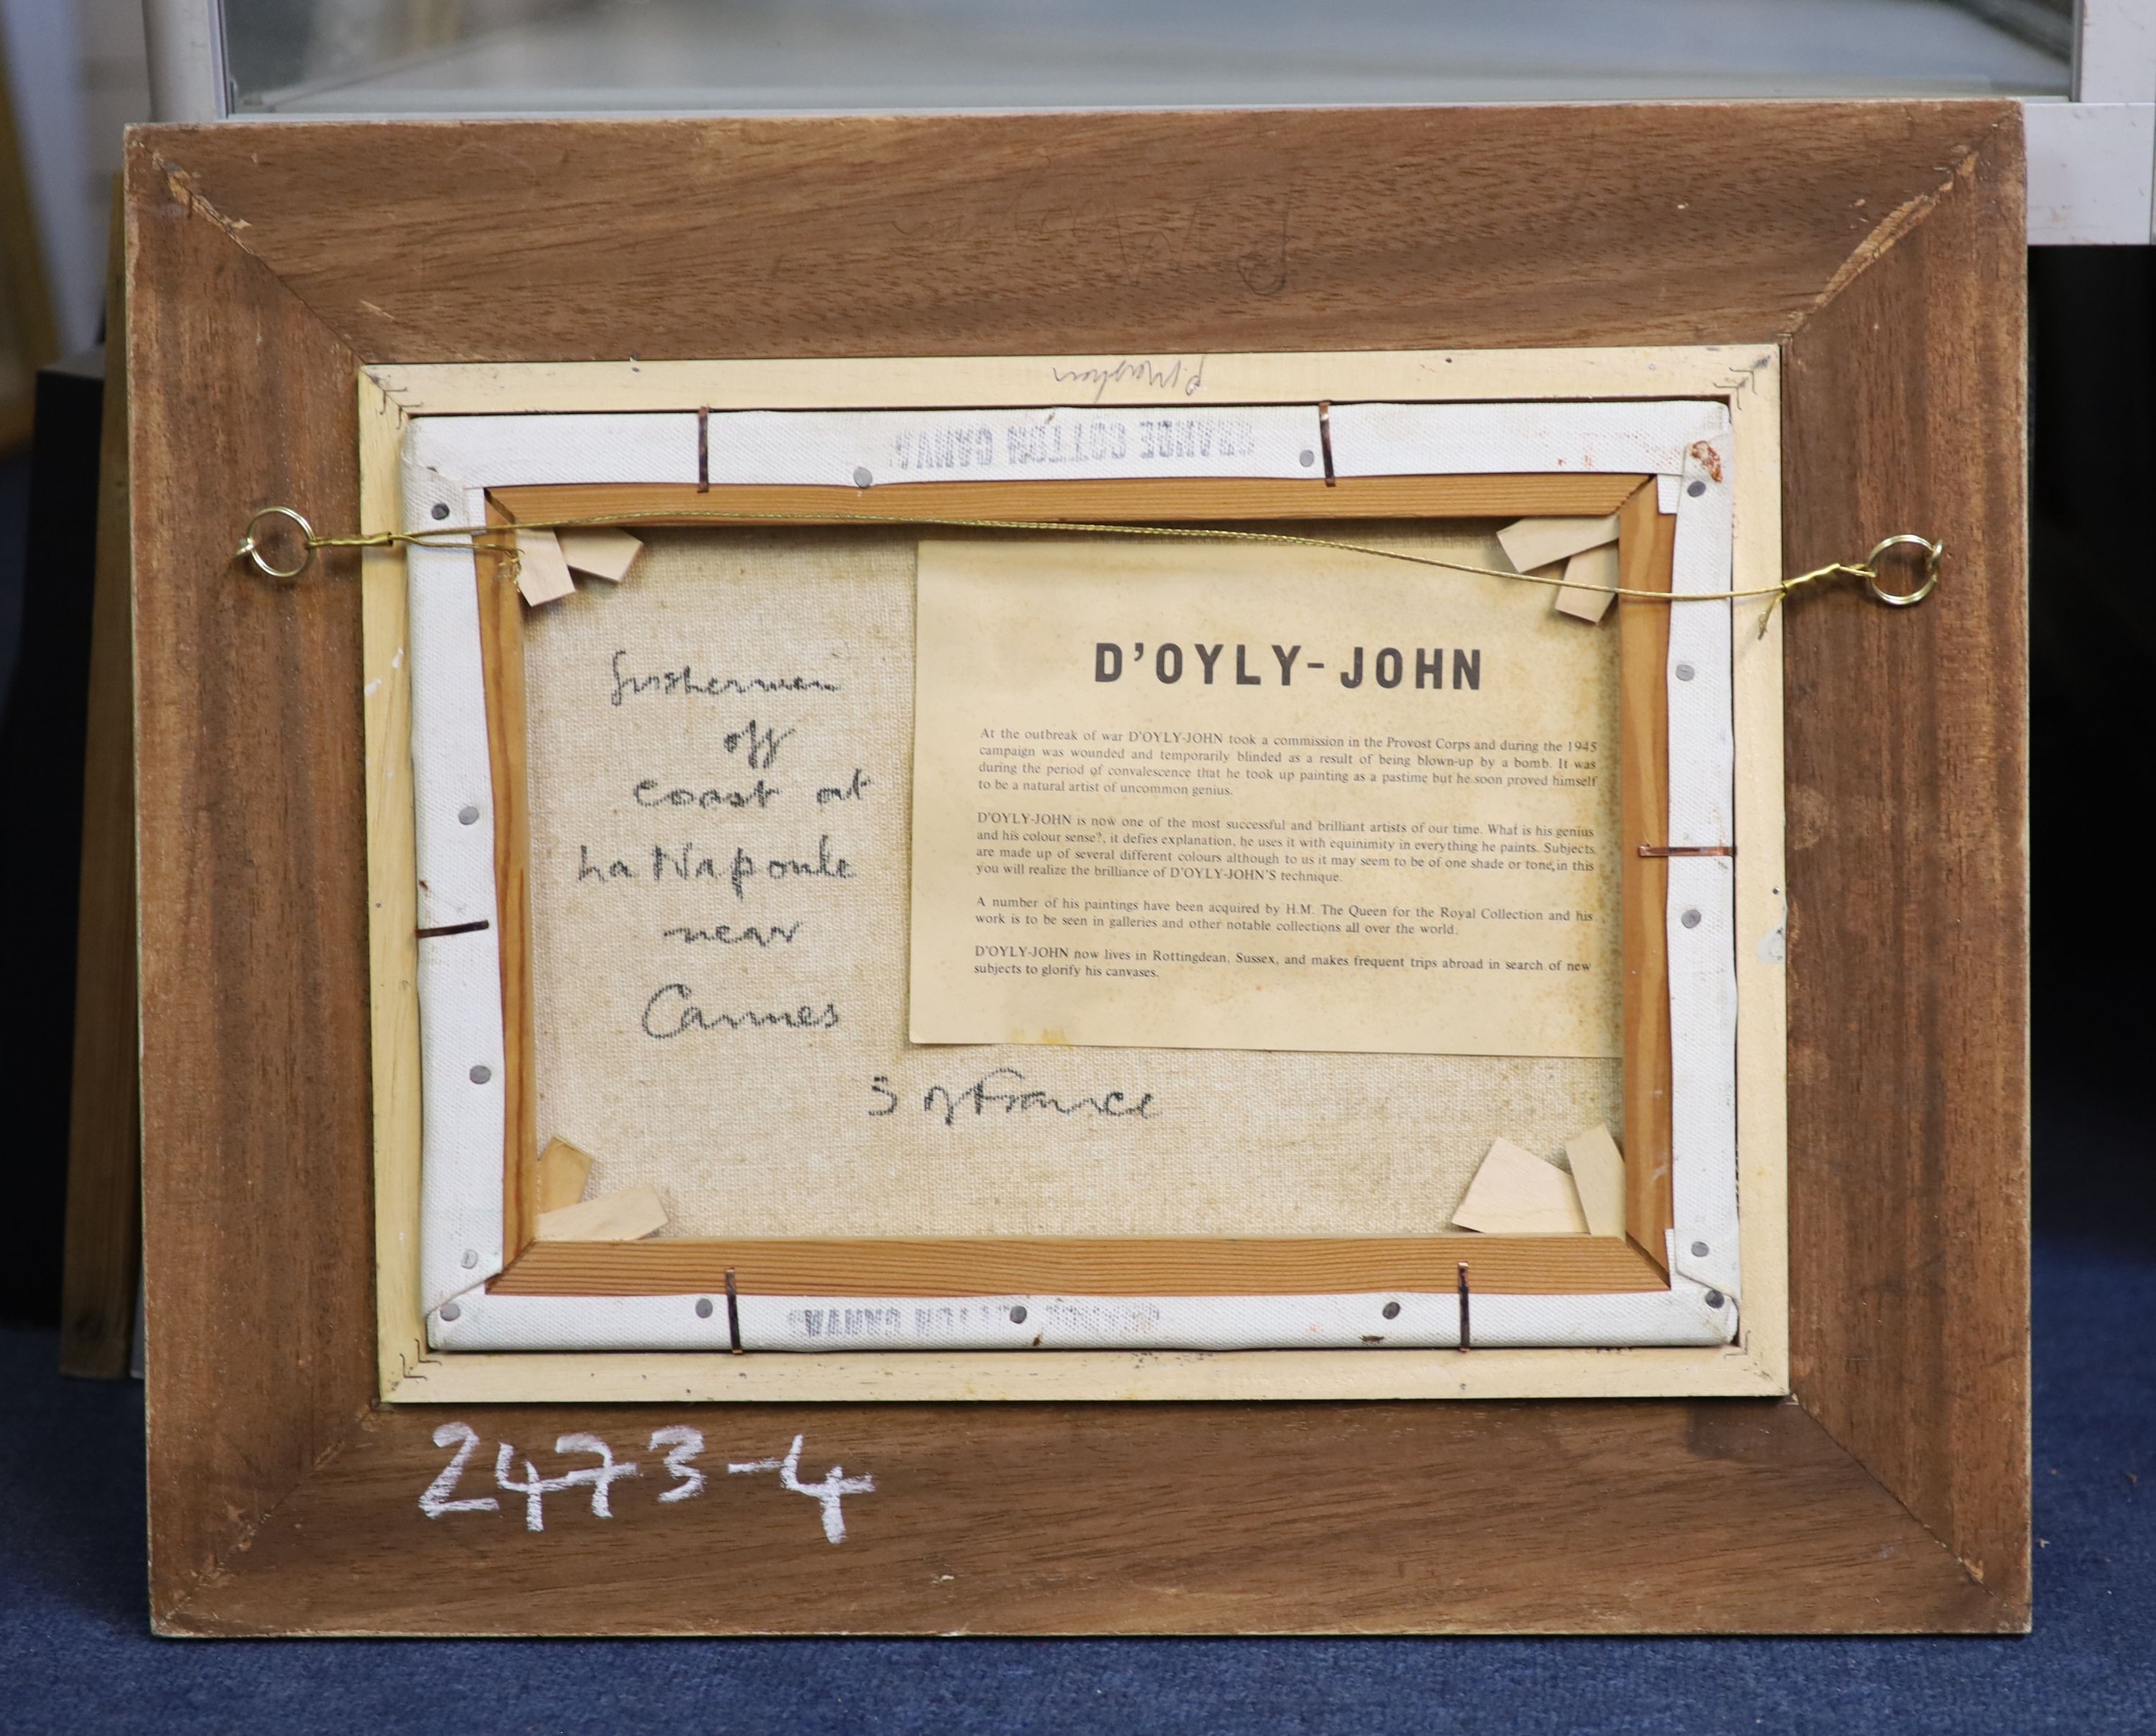 GRANDE COTTON CANVA
fissherman
off
coast at
La Napoule
near
Cannes
S of France
D'OYLY-JOHN
At the outbreak of war D'OYLY-JOHN took a commission in the Provost Corps and during the 1945
campaign was wounded and temporarily blinded as a result of being blown-up by a bomb. It was
during the period of convalescence that he took up painting as a pastime but he soon proved himself
to be a natural artist of uncommon genius.
D'OYLY-JOHN is now one of the most successful and brilliant artists of our time. What is his genius
and his colour sense?, it defies explanation, he uses it with equinimity in everything he paints. Subjects
are made up of several different colours although to us it may seem to be of one shade or tone, in this
you will realize the brilliance of D'OYLY-JOHN'S technique.
A number of his paintings have been acquired by H.M. The Queen for the Royal Collection and his
work is to be seen in galleries and other notable collections all over the world.
D'OYLY-JOHN now lives in Rottingdean, Sussex, and makes frequent trips abroad in search of new
subjects to glorify his canvases.
2473-4